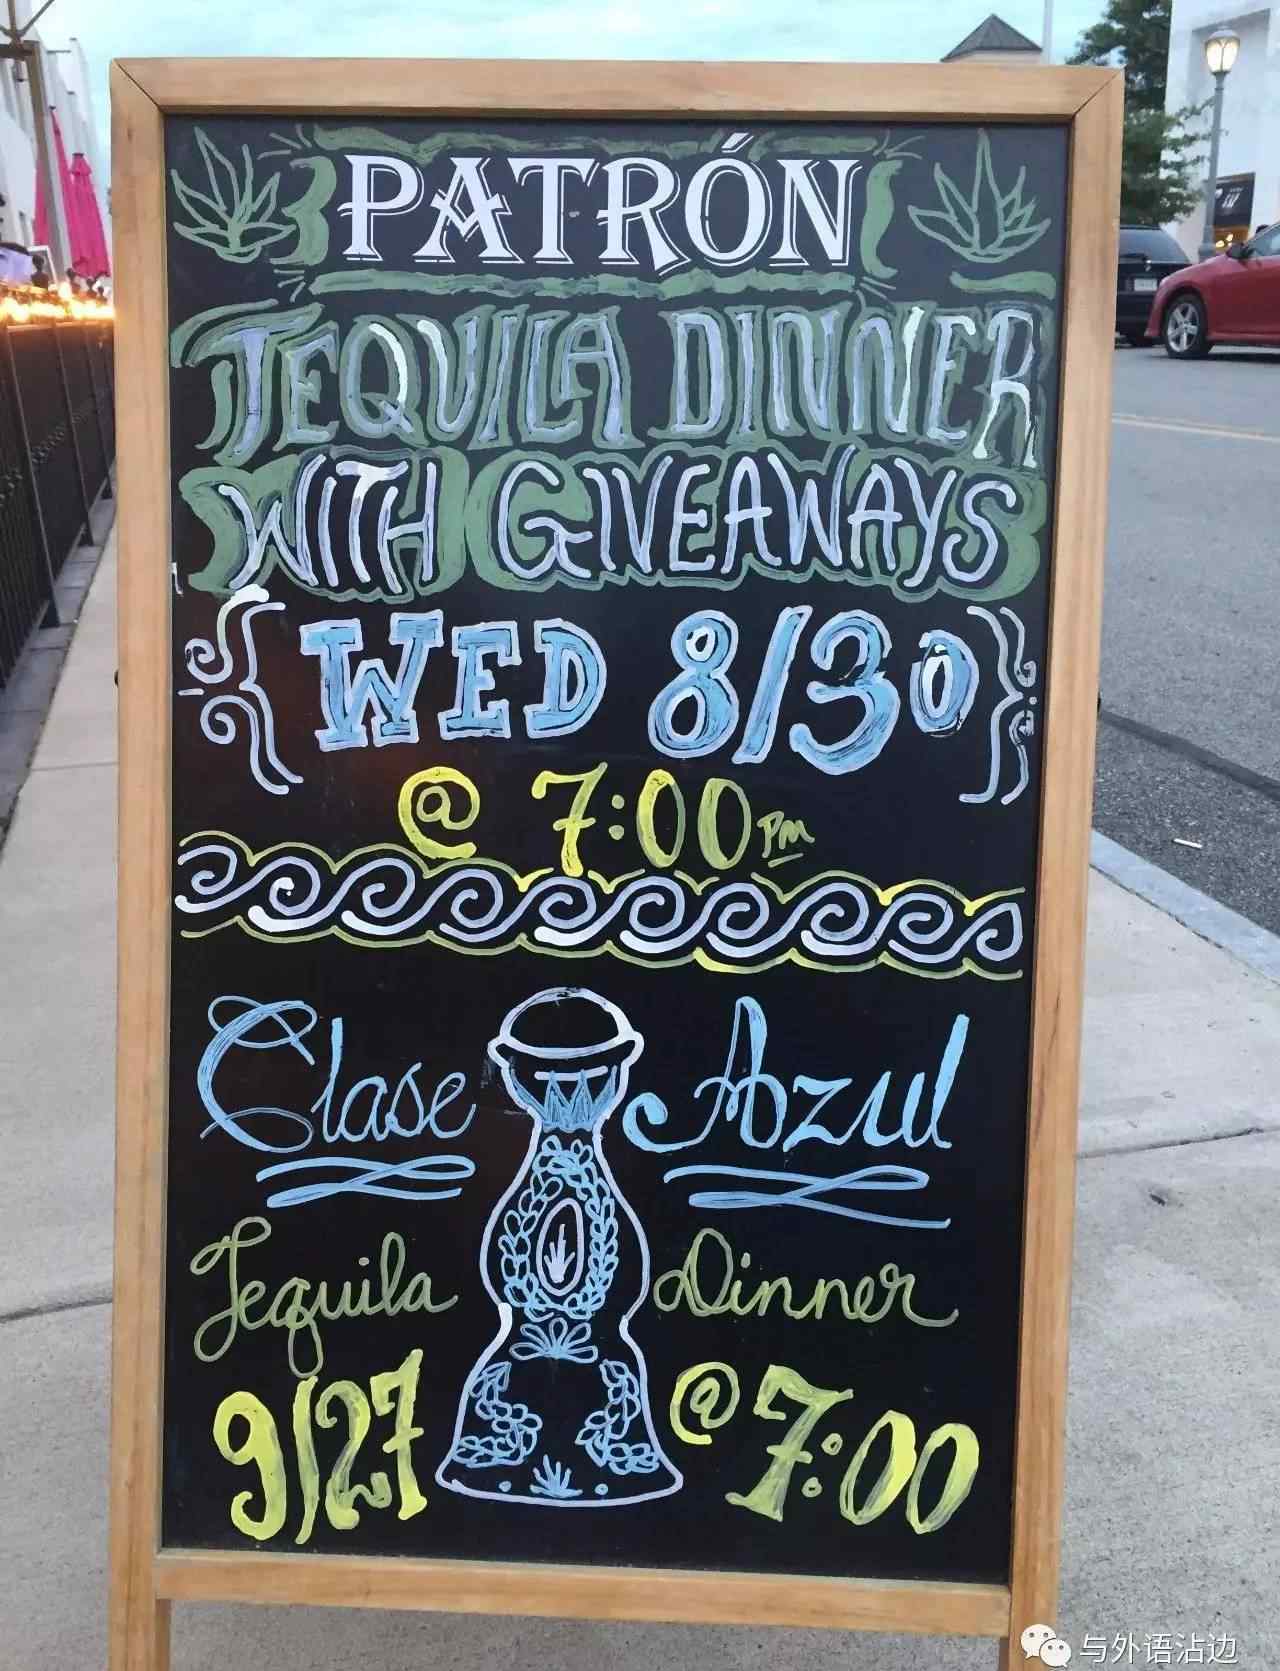 PATRÓN
TEQUILA DINNER
WITH GIVEAWAYS
WED 8/30
@ 7:00 PM
Clase Azul
Tequila Dinner
9/27 @ 7:00
与外语沾边